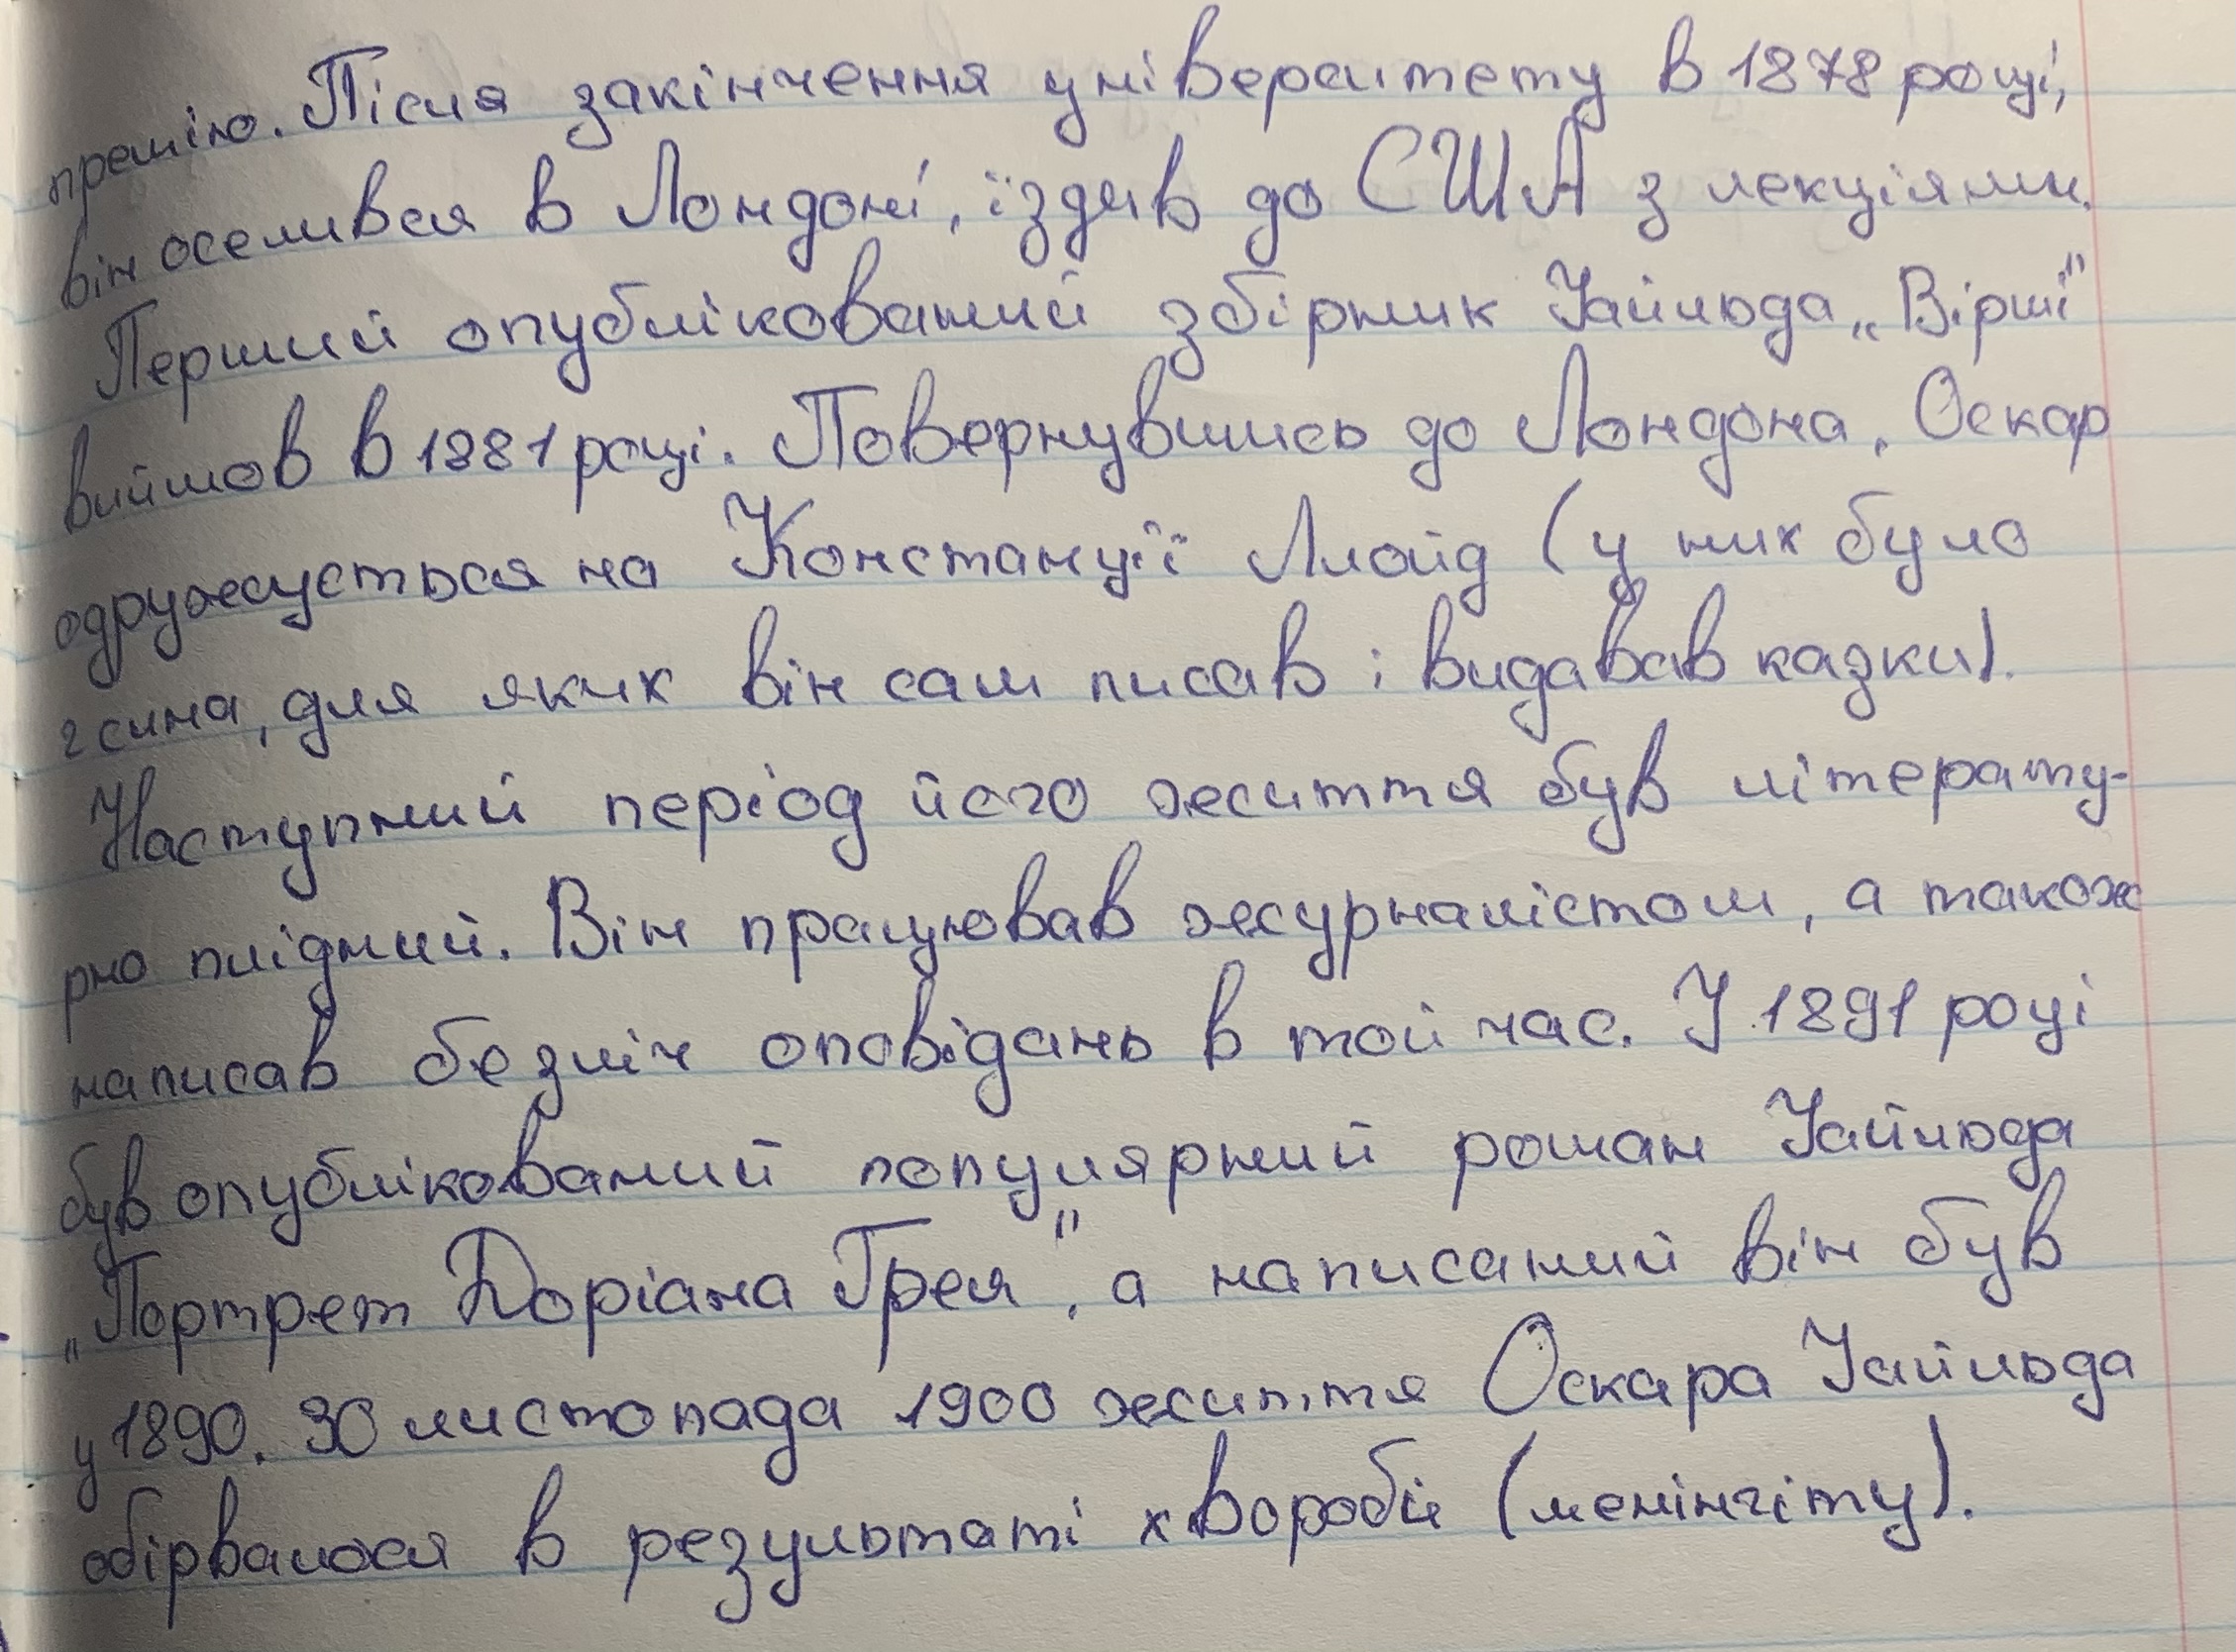 премію. Після закінчення університету в 1878 році,
він оселився в Лондоні, їздив до США з лекціями.
Перший опублікований збірник Уайльда „Вірші"
вийшов в 1881 році. Повернувшись до Лондона, Оскар
одружується на Констанції Ллойд (у них було
2 сина, для яких він сам писав і видавав казки).
Наступний період його життя був літерату-
рно плідний. Він працював журналістом, а також
написав безліч оповідань в той час. У 1891 році
був опублікований популярний роман Уайльда
„Портрет Доріана Грея", а написаний він був
у 1890. 30 листопада 1900 життя Оскара Уайльда
обірвалося в результаті хвороби (менінгіту).